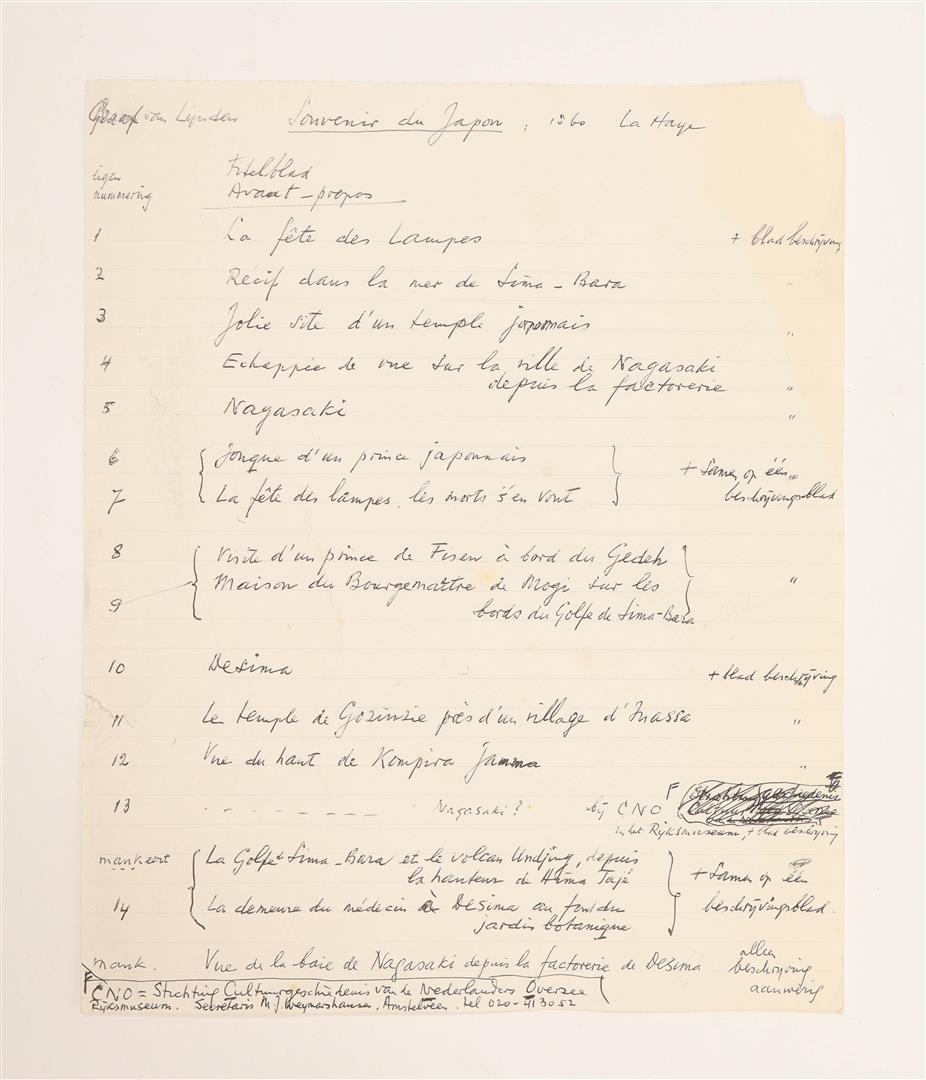 Graaf van Lijnden Souvenir du Japon, 1860 La Haye
eigen nummering
Titelblad
Avant-propos
1 La fête des Lampes + blad beschrijving
2 Récif dans la mer de Sima-Bara "
3 Jolie site d'un temple japonnais "
4 Echappée de vue sur la ville de Nagasaki
depuis la factorerie "
5 Nagasaki "
6 Jonque d'un prince japonnais + Samen op één
7 La fête des lampes, les morts s'en vont beschrijvingsblad
8 Visite d'un prince de Fisen à bord du Gedeh
Maison du Bourgemaître de Mogi sur les "
9 bords du Golfe de Sima-Bara
10 Desima + blad beschrijving
11 Le temple de Gozinzie près d'un village d'Inassa "
12 Vue du haut de Kompira Jamma "
13 Nagasaki? bij CNO F
in het Rijksmuseum, + blad beschrijving
mankeert La Golfe Sima-Bara et le volcan Undjing, depuis
la hauteur de Hima Tajé + Samen op één
14 La demeure du médecin à Desima au fond du beschrijvingsblad.
jardin botanique
mank. Vue de la baie de Nagasaki depuis la factorerie de Desima alleen beschrijving aanwezig
F CNO = Stichting Cultuurgeschiedenis van de Nederlanders Overzee
Rijksmuseum. Secretaris M.J. Weymarshausen, Amstelveen. tel 020-413052